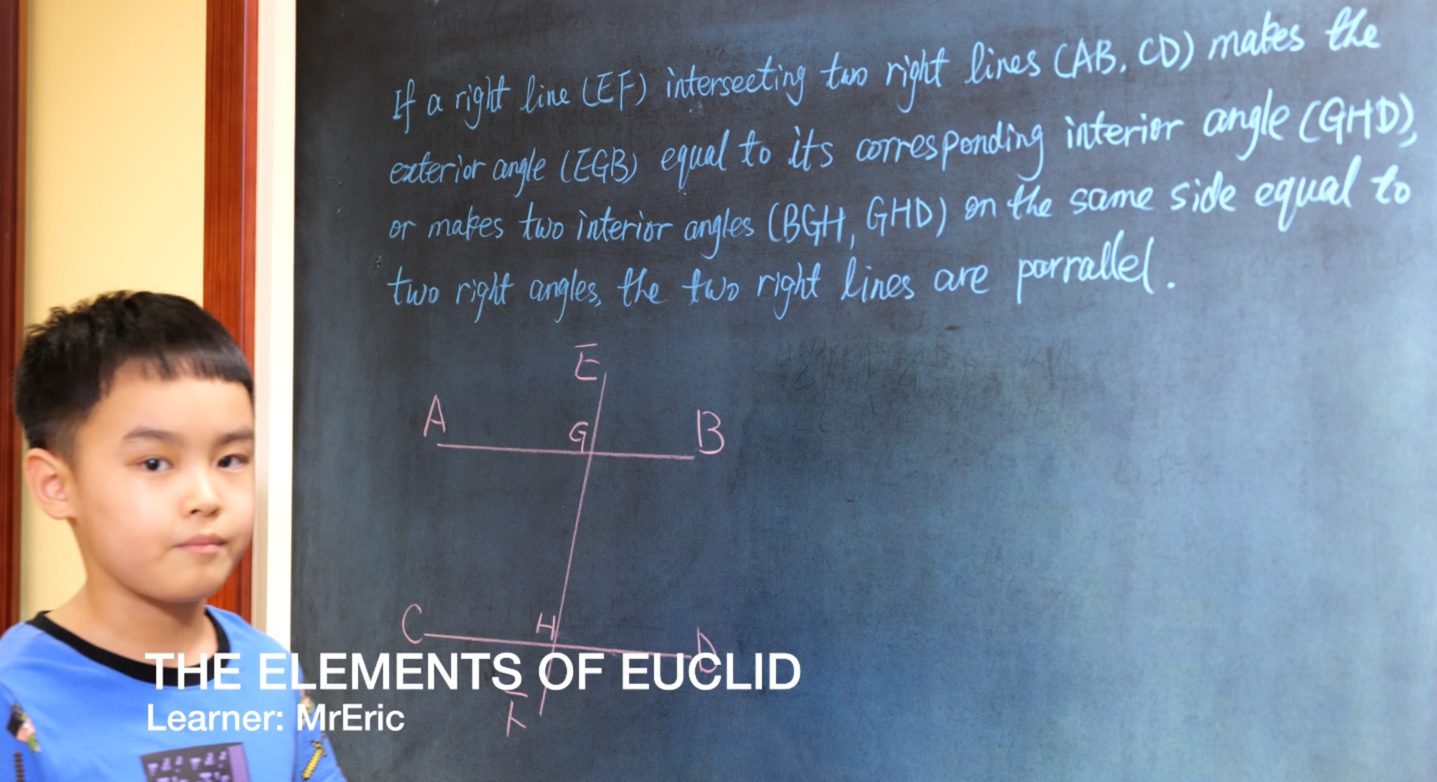 If a right line (EF) intersecting two right lines (AB, CD) makes the
exterior angle (EGB) equal to its corresponding interior angle (GHD),
or makes two interior angles (BGH, GHD) on the same side equal to
two right angles, the two right lines are parrallel.
E
A
G
B
C
H
D
F
THE ELEMENTS OF EUCLID
Learner: MrEric